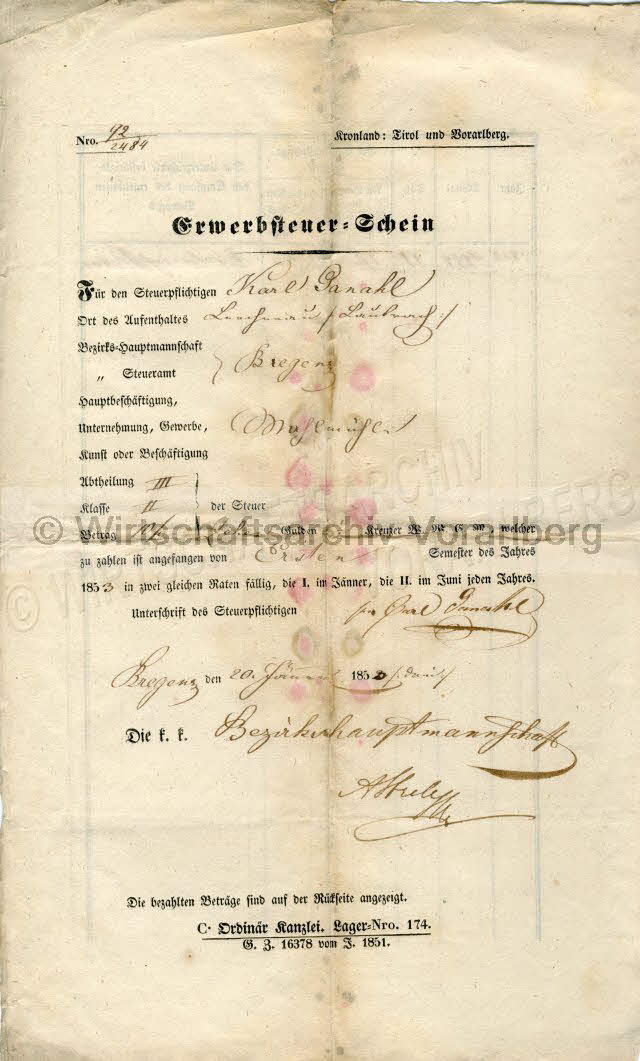 Nro. 92
2484
Kronland: Tirol und Vorarlberg.
Erwerbsteuer=Schein
Für den Steuerpflichtigen Karl Ganahl
Ort des Aufenthaltes
Bezirks=Hauptmannschaft
„ Steueramt } Bregenz
Hauptbeschäftigung,
Unternehmung, Gewerbe, Mahlmühle
Kunst oder Beschäftigung
Abtheilung III
Klasse II } der Steuer
Betrag Gulden Kreuzer W. W. C. M., welcher
zu zahlen ist angefangen von Ersten Semester des Jahres
1853 in zwei gleichen Raten fällig, die I. im Jänner, die II. im Juni jeden Jahres.
Unterschrift des Steuerpflichtigen Carl Ganahl
Bregenz den 20. Jänner 185
Die k. k. Bezirkshauptmannschaft
Die bezahlten Beträge sind auf der Rückseite angezeigt.
C. Ordinär Kanzlei. Lager=Nro. 174.
G. Z. 16378 vom J. 1851.
© Wirtschaftsarchiv Vorarlberg